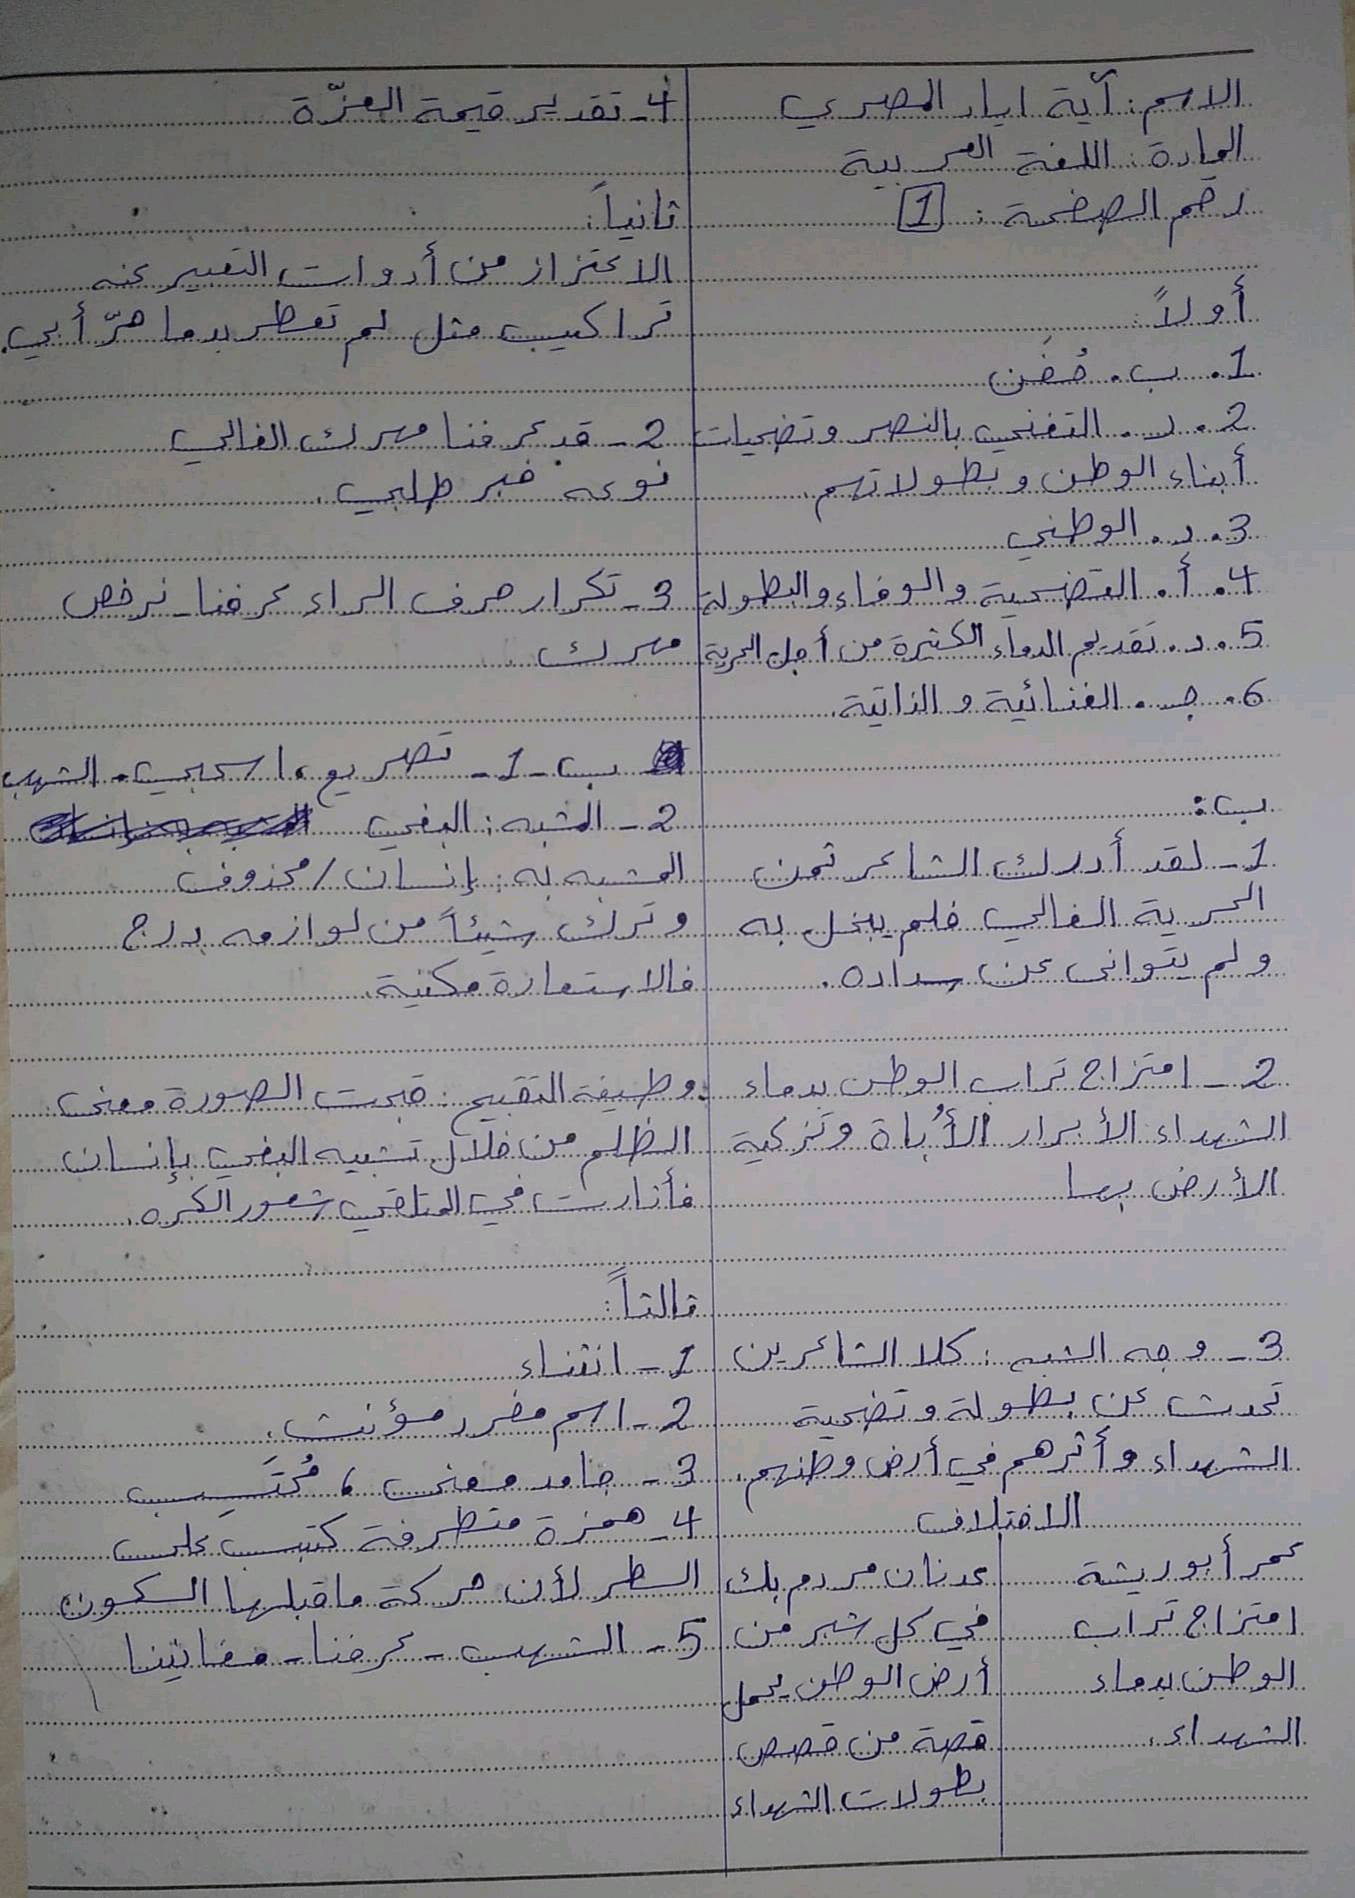 الاسم: آية اياد المصري
المادة: اللغة العربية
رقم الصفحة: 1
أولاً:
1. ب. ضَفَن
2. د. التغني بالنصر وتضحيات
أبناء الوطن وبطولاتهم.
3. د. الوطني
4. أ. التضحية والوفاء والبطولة
5. د. تقديم الدماء الكثيرة من أجل الحرية
6. جـ. الغنائية والذاتية.
ب:
1- لقد أدرك الشاعر ثمن
الحرية الغالي فلم يبخل به
ولم يتوانى عن سداده.
2- امتزاج تراب الوطن بدماء
الشهداء الأبرار الأُباة وتزكية
الأرض بها
3- وجه الشبه: كلا الشاعرين
تحدث عن بطولة وتضحية
الشهداء وأثرهم في أرض وطنهم.
الاختلاف
عمر أبو ريشة
امتزاج تراب
الوطن بدماء
الشهداء.
عدنان مردم بك
في كل شبر من
أرض الوطن يحمل
قصة من قصص
بطولات الشهداء
4- تقدير قيمة العزّة
ثانياً:
الاعتزاز من أدوات التعبير عنه
تراكيب مثل لم تعطر بدما حرّ أبي.
2- قد عرفنا مهرك الغالي
نوعه خبر طلبي.
3- تكرار حرف الراء عرفنا- نرخص
مهرك
ب-1- تصريع، اسحبي. الشهب
2- المشبه: البغي
المشبه به: إنسان/محذوف
وترك شيئاً من لوازمه درج
فالاستعارة مكنية.
وظيفة التقبيح: قبحت الصورة معنى
الظلم من خلال تشبيه البغي بإنسان
فأثارت في المتلقي شعور الكره.
ثالثاً:
1- انثناء
2- اسم مفرد مؤنث.
3- جامد معنى،
4- همزة متطرفة كتبت على
السطر لأن حركة ماقبلها السكون
5- الشهب- عرفنا- مغانينا